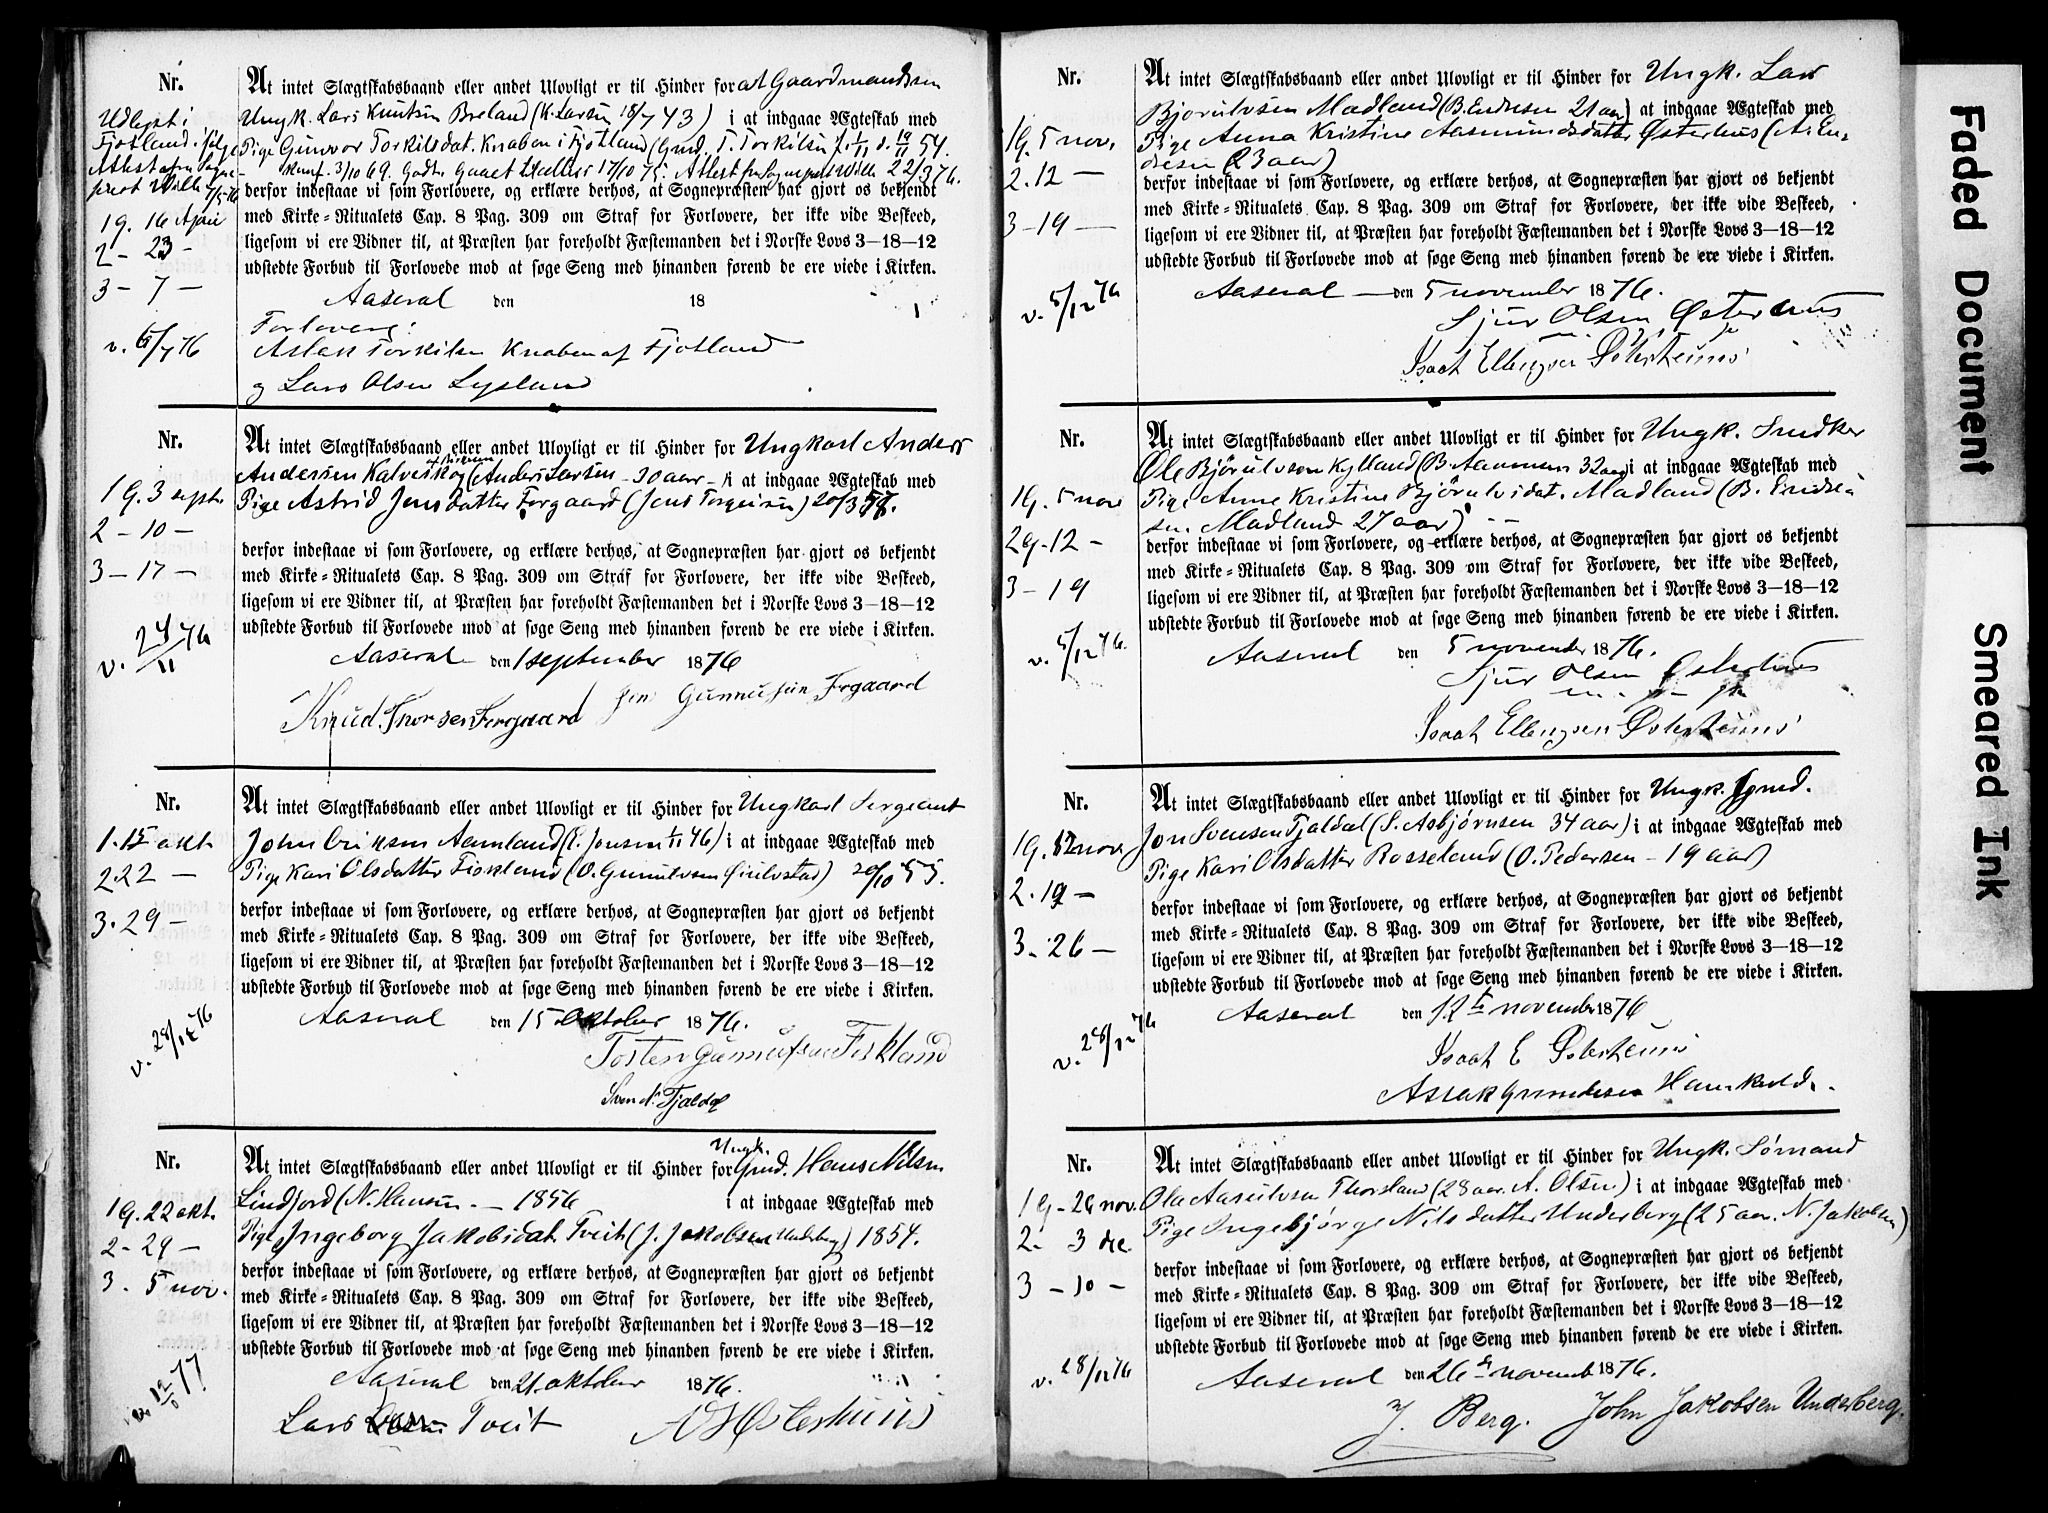 Nr.
At intet Slægtskabsbaand eller andet Ulovligt er til Hinder for at Gaardmandssøn
Udlyst i
Ungk. Lars Knutsen Breland (K. Larsen 18/7 43) i at indgaae Ægteskab med
Fjotland ifølge
Pige Gunvor Torkilsdat. Knaben i Fjotland (Gmd. T. Torkilsen f. 1/11 d. 19/11 54.
Attest fra Sogne-
Konf. 3/10 69. Godt. Gaaet t. Alters 17/10 75. Attest fra Sognepr. Wille 22/3 76.
prest Wille 7/5 76
derfor indestaae vi som Forlovere, og erklære derhos, at Sognepræsten har gjort os bekjendt
19. 16 April
med Kirke-Ritualets Cap. 8 Pag. 309 om Straf for Forlovere, der ikke vide Beskeed,
2 - 23 -
ligesom vi ere Vidner til, at Præsten har foreholdt Fæstemanden det i Norske Lovs 3-18-12
udstedte Forbud til Forlovede mod at søge Seng med hinanden førend de ere viede i Kirken.
3 - 7 -
Aaseral den 18
Forlovere:
v. 6/7 76
Aslak Torkilsen Knaben af Fjotland
og Lars Olsen Lysland
Nr.
At intet Slægtskabsbaand eller andet Ulovligt er til Hinder for Ungkarl Anders
Andersen Kalveskog (Anders Larsen - 30 aar - i at indgaae Ægteskab med
19. 3 septr
Pige Astrid Jensdatter Forgaard (Jens Torgersen) 20/3 57.
2 - 10 -
derfor indestaae vi som Forlovere, og erklære derhos, at Sognepræsten har gjort os bekjendt
3 - 17 -
med Kirke-Ritualets Cap. 8 Pag. 309 om Straf for Forlovere, der ikke vide Beskeed,
ligesom vi ere Vidner til, at Præsten har foreholdt Fæstemanden det i Norske Lovs 3-18-12
udstedte Forbud til Forlovede mod at søge Seng med hinanden førend de ere viede i Kirken.
v. 24/11 76
Aaseral den 1 september 1876
Knud Thorsen Forgaard Jens Gunnufsen Forgaard
Nr.
At intet Slægtskabsbaand eller andet Ulovligt er til Hinder for Ungkarl Sergeant
1. 15 okt.
John Eriksen Aamland (E. Jonsen 1/11 46) i at indgaae Ægteskab med
2 22 -
Pige Kari Olsdatter Fiskland (O. Gunulvsen Øiulvstad) 20/10 55.
3. 29 -
derfor indestaae vi som Forlovere, og erklære derhos, at Sognepræsten har gjort os bekjendt
med Kirke-Ritualets Cap. 8 Pag. 309 om Straf for Forlovere, der ikke vide Beskeed,
ligesom vi ere Vidner til, at Præsten har foreholdt Fæstemanden det i Norske Lovs 3-18-12
udstedte Forbud til Forlovede mod at søge Seng med hinanden førend de ere viede i Kirken.
v. 28/12 76
Aaseral den 15 Oktober 1876.
Torsten Gunnufsen Fiskland
Sven N. Fjaldal
Nr.
Ungk.
At intet Slægtskabsbaand eller andet Ulovligt er til Hinder for Gmd. Hans Nilsen
19. 22 okt.
Lindjord (N. Hansen - 1856 i at indgaae Ægteskab med
2 - 29 -
Pige Ingeborg Jakobsdat. Tveit (J. Jakobsen Underberg) 1854.
3. 5 nov.
derfor indestaae vi som Forlovere, og erklære derhos, at Sognepræsten har gjort os bekjendt
med Kirke-Ritualets Cap. 8 Pag. 309 om Straf for Forlovere, der ikke vide Beskeed,
ligesom vi ere Vidner til, at Præsten har foreholdt Fæstemanden det i Norske Lovs 3-18-12
udstedte Forbud til Forlovede mod at søge Seng med hinanden førend de ere viede i Kirken.
Aaseral den 21. oktober 1876.
Lars Tveit N Østerhuus
Nr.
At intet Slægtskabsbaand eller andet Ulovligt er til Hinder for Ungk. Lars
19. 5 nov.
Bjorulvsen Madland (B. Endresen 21 aar) i at indgaae Ægteskab med
Pige Anna Kristine Aasmundsdatter Østerhus (A. En-
2. 12 -
dresen (23 aar)
3 - 19 -
derfor indestaae vi som Forlovere, og erklære derhos, at Sognepræsten har gjort os bekjendt
med Kirke-Ritualets Cap. 8 Pag. 309 om Straf for Forlovere, der ikke vide Beskeed,
ligesom vi ere Vidner til, at Præsten har foreholdt Fæstemanden det i Norske Lovs 3-18-12
udstedte Forbud til Forlovede mod at søge Seng med hinanden førend de ere viede i Kirken.
v. 5/12 76
Aaseral - den 5 november 1876.
Sjur Olsen Østerhus
Isaak Ellengsen Østerhuus
Nr.
At intet Slægtskabsbaand eller andet Ulovligt er til Hinder for Ungk. Snedker
Ole Bjørulvsen Kylland (B. Aanensen 32 aar) i at indgaae Ægteskab med
19. 5 nov
Pige Anne Kristine Bjørulvsdat. Madland (B. Endre-
sen Madland 27 aar)
29 - 12 -
derfor indestaae vi som Forlovere, og erklære derhos, at Sognepræsten har gjort os bekjendt
3 - 19
med Kirke-Ritualets Cap. 8 Pag. 309 om Straf for Forlovere, der ikke vide Beskeed,
ligesom vi ere Vidner til, at Præsten har foreholdt Fæstemanden det i Norske Lovs 3-18-12
udstedte Forbud til Forlovede mod at søge Seng med hinanden førend de ere viede i Kirken.
v. 5/12 76.
Aaseral den 5 november 1876.
Sjur Olsen Østerhus
Isaak Ellengsen Østerhuus
Nr.
At intet Slægtskabsbaand eller andet Ulovligt er til Hinder for Ungk. Gmd.
19. 12 nov
Jon Svensen Fjaldal (S. Asbjørnsen 34 aar) i at indgaae Ægteskab med
2. 19 -
Pige Kari Olsdatter Rosseland (O. Pedersen - 19 aar)
3. 26 -
derfor indestaae vi som Forlovere, og erklære derhos, at Sognepræsten har gjort os bekjendt
med Kirke-Ritualets Cap. 8 Pag. 309 om Straf for Forlovere, der ikke vide Beskeed,
ligesom vi ere Vidner til, at Præsten har foreholdt Fæstemanden det i Norske Lovs 3-18-12
udstedte Forbud til Forlovede mod at søge Seng med hinanden førend de ere viede i Kirken.
v. 28/12 76
Aaseral den 12te november 1876
Isaak E Østerhuus
Aslak Gundersen Hamkold.
Nr.
At intet Slægtskabsbaand eller andet Ulovligt er til Hinder for Ungk. Sømand
19 - 26 nov.
Ola Aasulvsen Thorsland (28 aar. A. Olsen) i at indgaae Ægteskab med
2. 3 dec.
Pige Ingebjørg Nilsdatter Underberg (25 aar. N. Jakobsen)
3 - 10 -
derfor indestaae vi som Forlovere, og erklære derhos, at Sognepræsten har gjort os bekjendt
med Kirke-Ritualets Cap. 8 Pag. 309 om Straf for Forlovere, der ikke vide Beskeed,
ligesom vi ere Vidner til, at Præsten har foreholdt Fæstemanden det i Norske Lovs 3-18-12
udstedte Forbud til Forlovede mod at søge Seng med hinanden førend de ere viede i Kirken.
v. 28/12 76
Aaseral den 26de novemb 1876.
J. Berg. John Jakobsen Underberg.
Faded Document
Smeared Ink